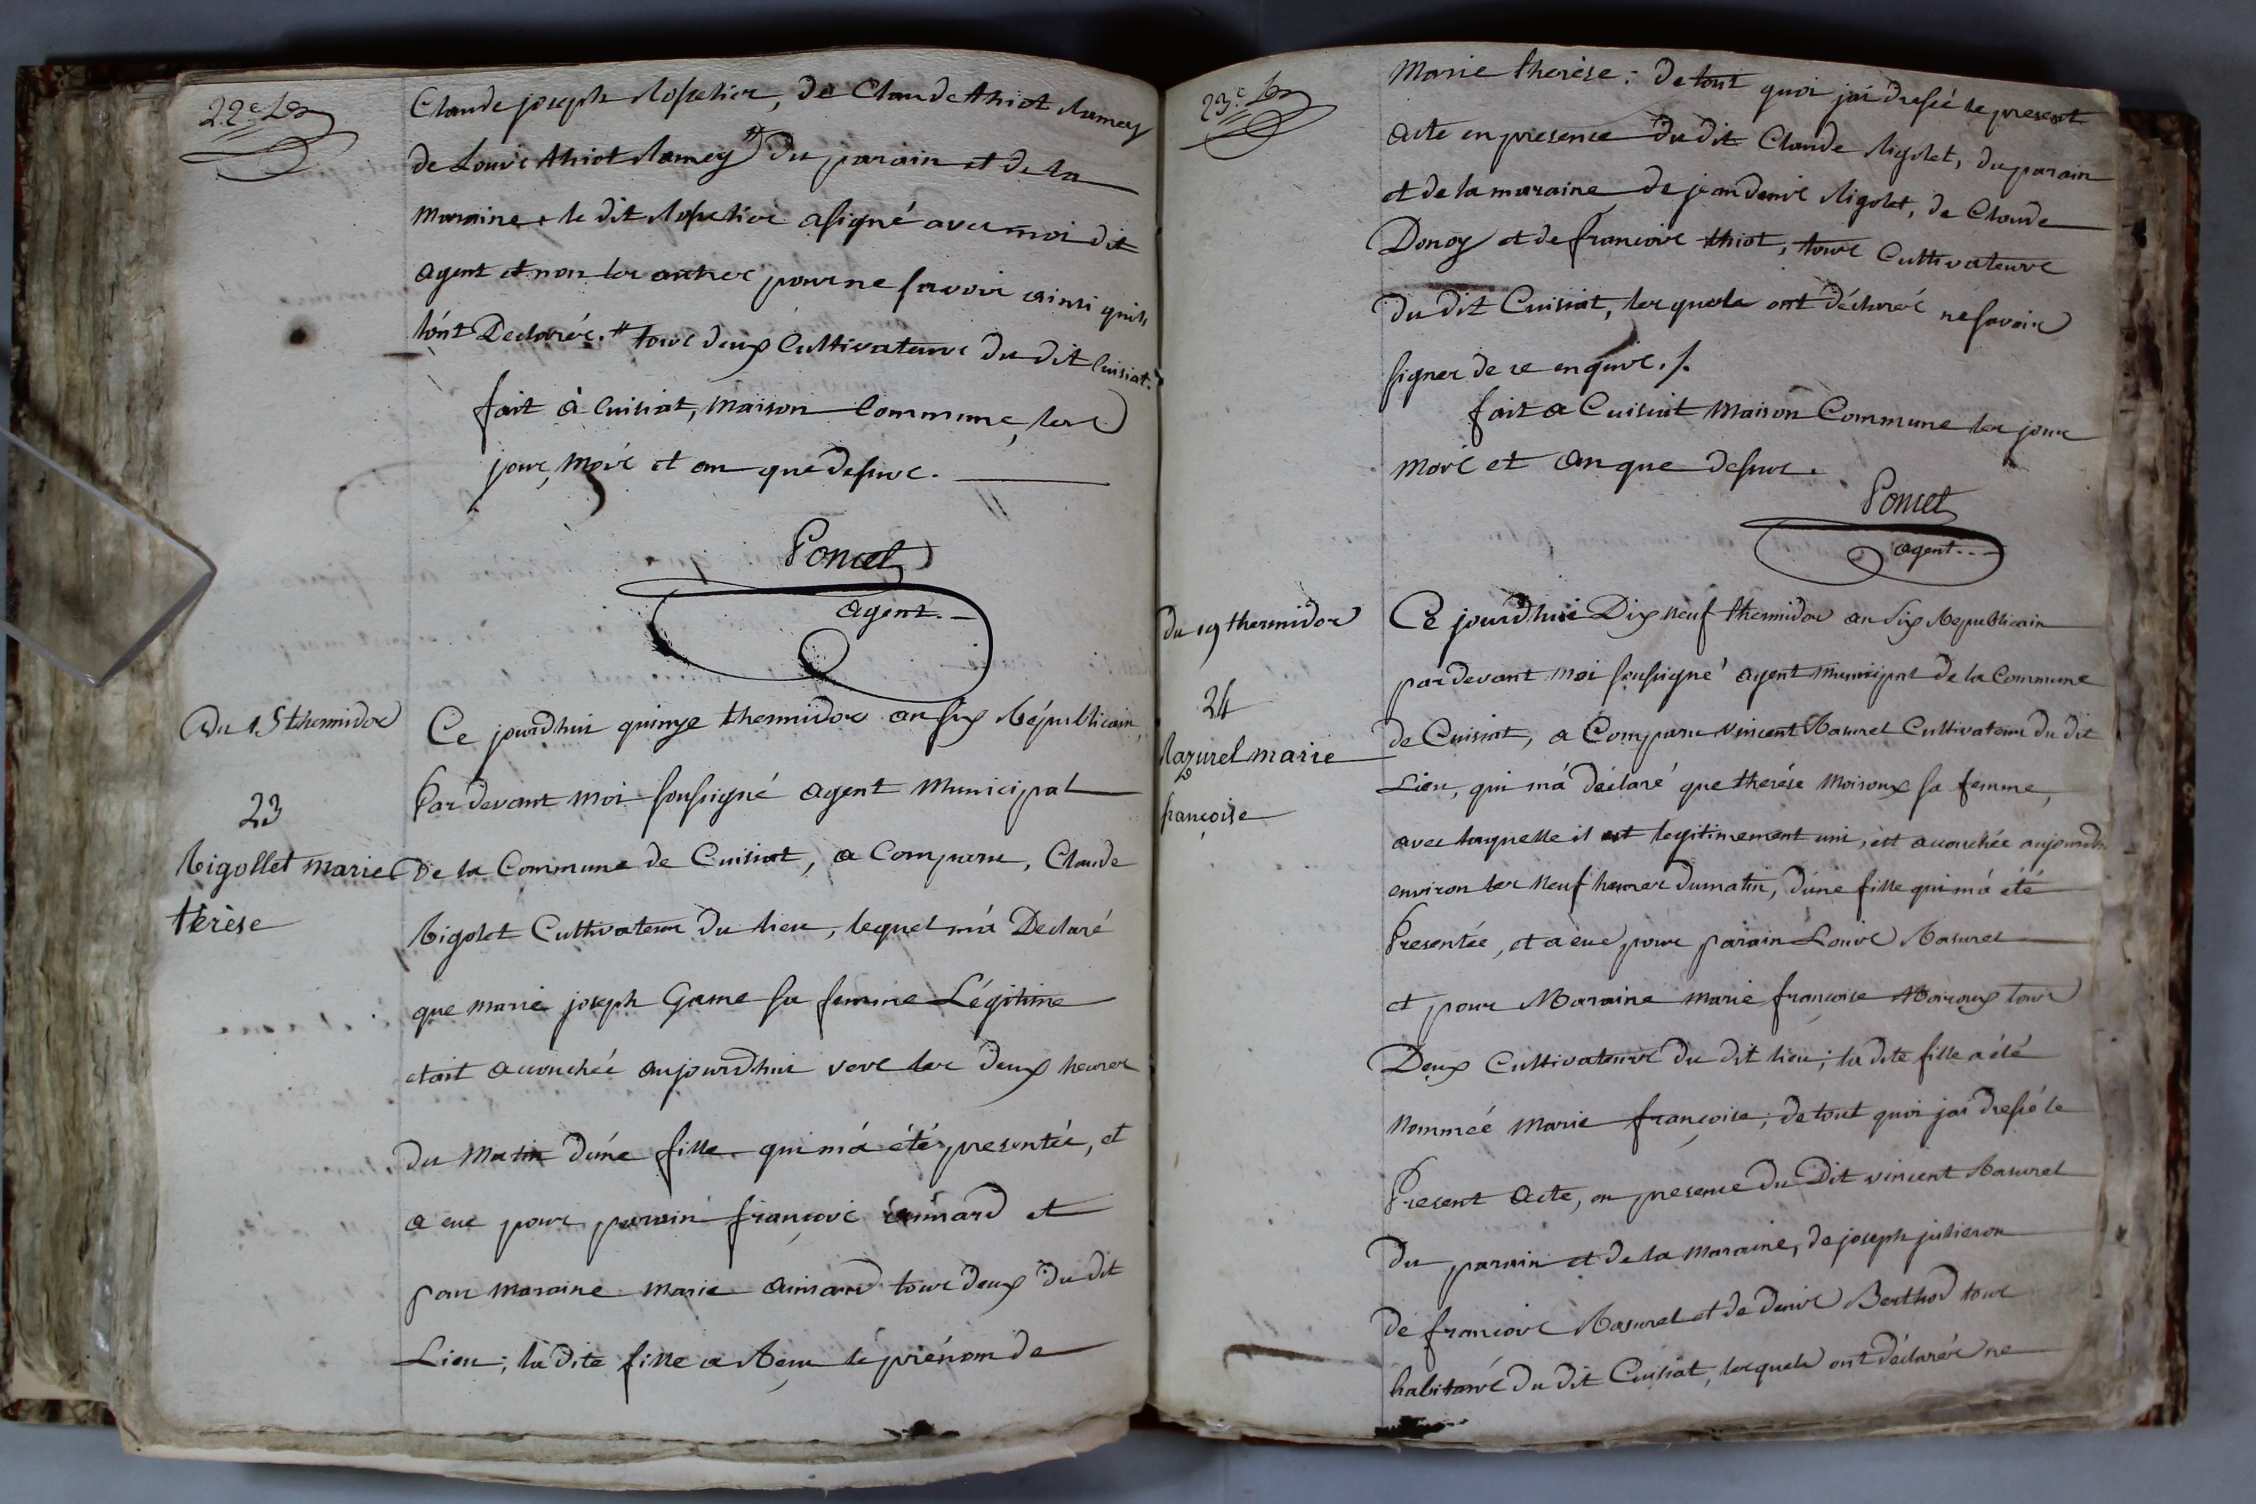 22e
Claude joseph Rosselier, de Claude thiot Ramey
de Louis thiot Ramey # du parain et de la
Maraine. le dit Rosselier a signé avec moi dit
agent et non les autres pour ne savoir ainsi quils
l'ont Declarés. # tous deux Cultivateurs du dit Cuisiat.
fait à Cuisiat, Maison Commune, les
jour, Mois et an que dessus.
Poncet
agent.
Du 15 thermidor
23
Rigollet Marie
térèse
Ce jourdhui quinze thermidor an six Républicain,
Pardevant Moi soussigné agent Municipal
De la Commune de Cuisiat, a Comparu, Claude
Rigolet Cultivateur du lieu, lequel m'a Declaré
que Marie joseph Game sa femme Légitime
etait accouchée aujourdhui vers les deux heures
du Matin d'une fille qui m'a été presentée, et
a eue pour parain françois ainard et
pour Maraine Marie ainard tous deux du dit
Lieu; la dite fille a Reçu le prénom de
23e
Marie therèse: de tout quoi jai dressé le present
acte en presence du dit Claude Rigolet, du parain
et de la maraine de jean denis Rigolet, de Claude
Donoy et de françois thiot, tous Cultivateurs
du dit Cuisiat, lesquels ont déclarés ne savoir
signer de ce enquis./.
fait a Cuisiat Maison Commune les jour
Mois et an que dessus.
Poncet
agent
Du 19 thermidor
24
Razurel marie
françoise
Ce jourdhui Dix neuf thermidor an six Republicain
pardevant moi soussigné agent Municipal de la Commune
de Cuisiat, a Comparu vincent Rasurel Cultivateur du dit
Lieu, qui m'a déclaré que therése Moiroux sa femme,
avec laquelle il est legitimement uni, est accouchée aujourdh.
environ les Neuf heures du matin, d'une fille qui m'a été
Presentée, et a eue pour parain Louis Rasurel
et pour Maraine Marie françoise Moiroux tous
Deux Cultivateurs du dit lieu; la dite fille a été
Nommée Marie françoise; de tout quoi jai dressé le
Present acte, en presence du Dit vincent Rasurel
du parain et de la Maraine, de joseph julieron
de françois Rasurel et de denis Berthod tous
habitans du dit Cuisiat, lesquels ont déclarés ne